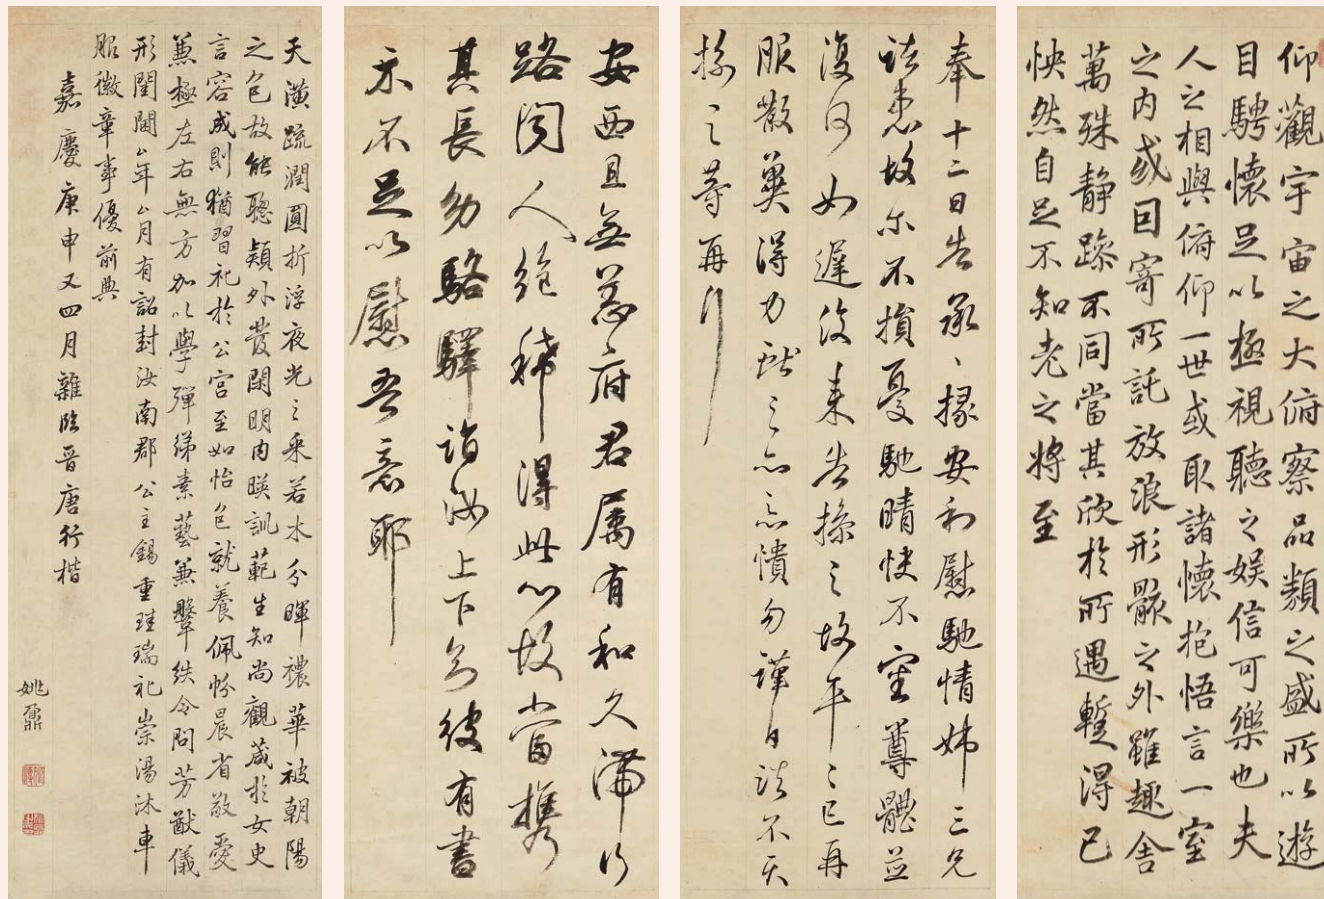 仰觀宇宙之大俯察品類之盛所以遊
目騁懷足以極視聽之娛信可樂也夫
人之相與俯仰一世或取諸懷抱悟言一室
之內或因寄所託放浪形骸之外雖趣舍
萬殊静躁不同當其欣於所遇蹔得己
怏然自足不知老之將至
奉十二日告承〻掾安和慰馳情姊三兄
諸患故尔不損憂馳晴快不審尊體並
復何如遲復来告操之故平〻已再
服散冀得力獻之亦惡憒勿謹白
操之等再
安西且無恙府君屬有和久滯行
路閡人絶稀得此心故當攜
其長幼駱驛詣汝上下彼有書
示不足以慰吾意耶
天潢疏潤圓折浮夜光之采若木分暉禯華被朝陽
之色故能聰穎外發閑明内暎訓範生知尚觀箴於女史
言容成則猶習礼於公宮至如怡色就養佩帉晨省敬愛
兼極左右無方加以學殫綈素藝兼鞶紩令問芳猷儀
形閨閫厶年厶月有詔封汝南郡公主錫重珪瑞礼崇湯沐車
服徽章事優前典
嘉慶庚申又四月雜臨晉唐行楷
姚鼐